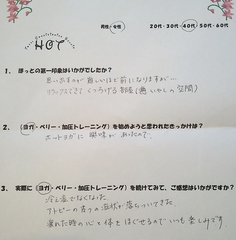 HOT
男性・女性　20代・30代・40代・50代・60代
1. ほっとの第一印象はいかがでしたか?
思い出すのが難しいほど前になりますが…
リラックスできて くつろげる部屋(癒しの空間)
2. (ヨガ・ベリー・加圧トレーニング)を始めようと思われたきっかけは?
ホットヨガに 興味があったので。
3. 実際に(ヨガ・ベリー・加圧トレーニング)を続けてみて、ご感想はいかがですか?
冷え症でなくなった。
アトピーの 症状が落ちついてきた
疲れた時の心と体もほぐせるので いつも楽しみです